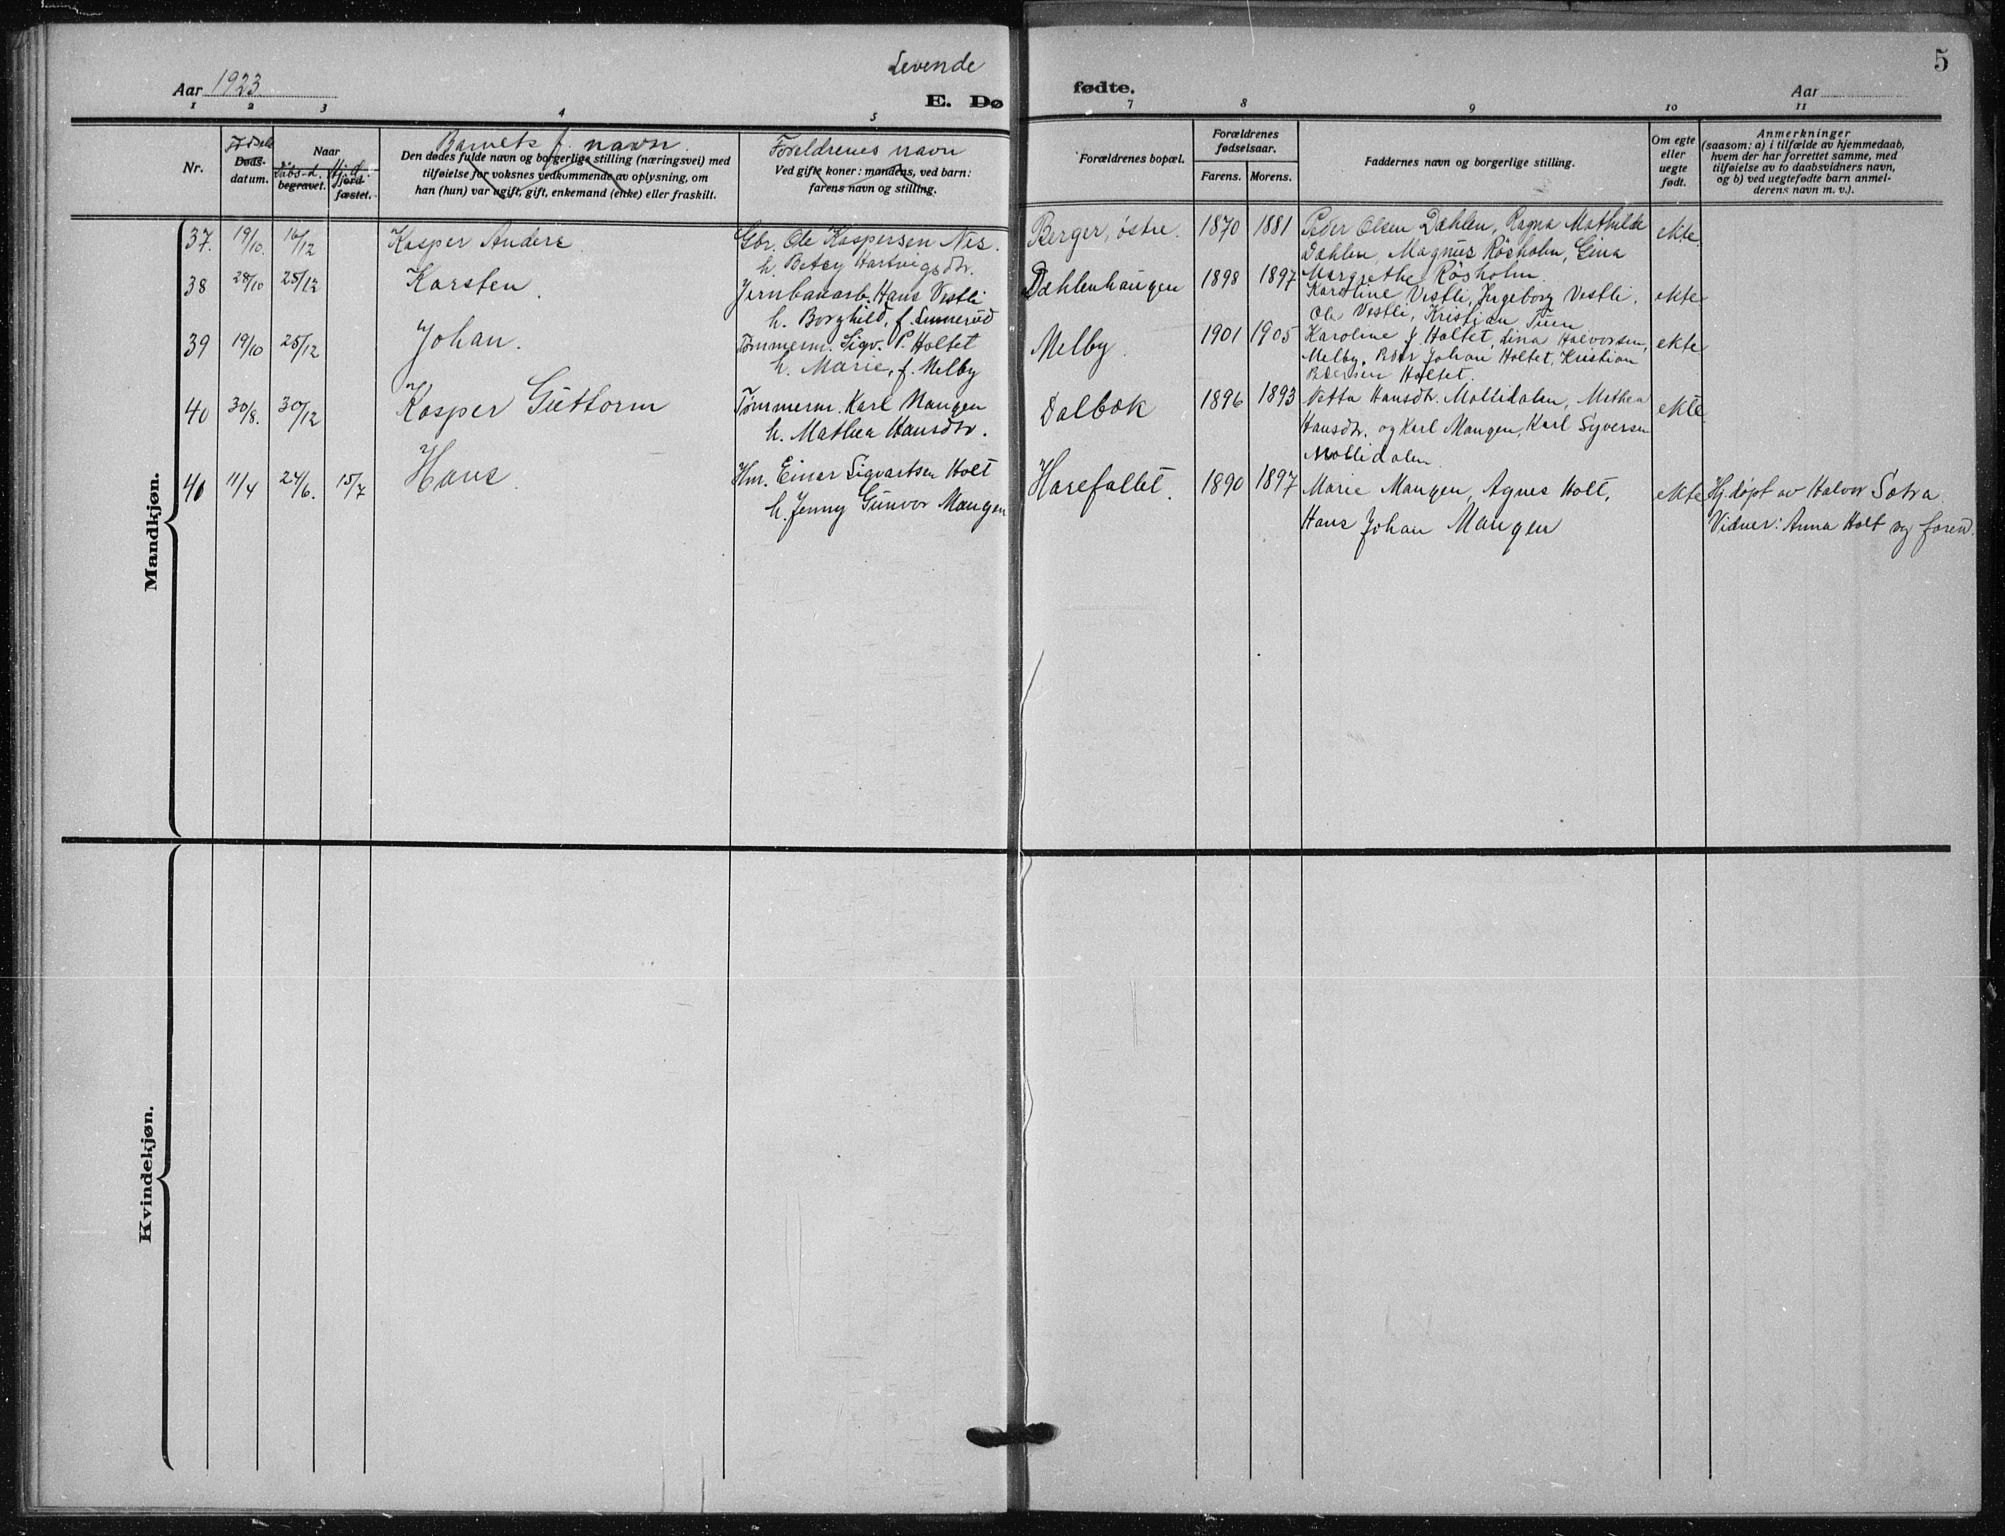 Levende
5
Aar 1923
E. Dø
fødte.
Aar
1 2 3 4 5 7 8 9 10 11
Nr.
Fødsels
Døds-
datum.
Naar
Dåbs-d.
begravet.
Hj.d.
jord-
fæstet.
Barnets f. navn.
Den dødes fulde navn og borgerlige stilling (næringsvei) med
tilføielse for voksnes vedkommende av oplysning, om
han (hun) var ugift, gift, enkemand (enke) eller fraskilt.
Foreldrenes navn
Ved gifte koner: mandens, ved barn:
farens navn og stilling.
Forældrenes bopæl.
Forældrenes
fødselsaar.
Farens. Morens.
Faddernes navn og borgerlige stilling.
Om egte
eller
uegte
født.
Anmerkninger
(saasom: a) i tilfælde av hjemmedaab,
hvem der har forrettet samme, med
tilføielse av to daabsvidners navn,
og b) ved uegtefødte barn anmel-
derens navn m. v.).
Mandkjøn.
37. 19/10. 16/12 Kasper Anders Gbr. Ole Kaspersen Nes. Berger, østre. 1870 1881 Peder Olsen Dæhlen, Ragna Mathilde ekte.
h. Betsy Hartvigsdtr. Dæhlen, Magnus Røsholm, Gina
Margrethe Røsholm.
38 28/10 25/12 Karsten. Jernbanarb. Hans Vestli Dæhlenhaugen 1898 1897 Karoline Vestli, Ingeborg Vestli, ekte
h. Borghild, f. Linnerud Ole Vestli, Kristian Tuen
39 19/10 25/12 Johan. Tømmerm. Sigv. P. Holtet Melby. 1901 1905 Karoline J Holtet, Lina Halvorsen, ekte
h. Marie, f. Melby Melby, Peder Johan Holtet, Kristian
Pedersen Holtet.
40 30/8. 30/12 Kasper Guttorm Tømmerm. Karl Mangen Dalbæk 1896 1893 Netta Hansdtr. Mollidalen, Mathea ekte.
h. Mathea Hansdtr. Hansdtr. og Karl Mangen, Karl Syversen
Mollidalen.
41 11/4 24/6. 15/7 Hans. Hm. Einar Sigvartsen Holt Harefallet. 1890 1897 Marie Mangen, Agnes Holt, ekte Hj.døpt av Halvor Sætra.
h. Jenny Gunvor Mangen Hans Johan Mangen Vidner: Anna Holt og foreld.
Kvindekjøn.